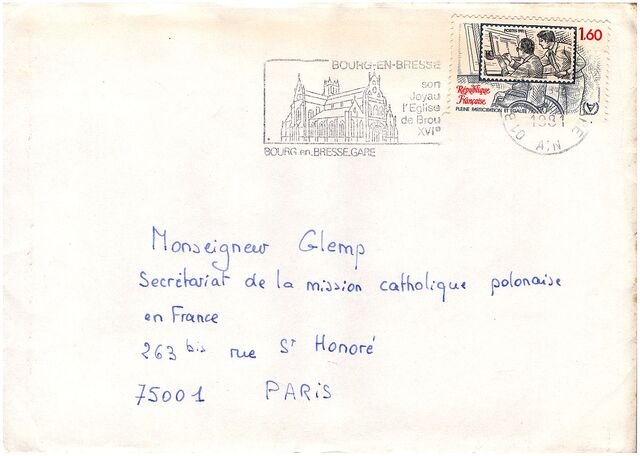 BOURG-EN-BRESSE
son
Joyau
l'Eglise
de Brou
XVIe
BOURG.en.BRESSE.GARE
POSTES 1981
1.60
République
Française
PLEINE PARTICIPATION ET EGALITE
01
1981
AIN
Monseigneur Glemp
Secrétariat de la mission catholique polonaise
en France
263 bis rue St Honoré
75001 PARIS